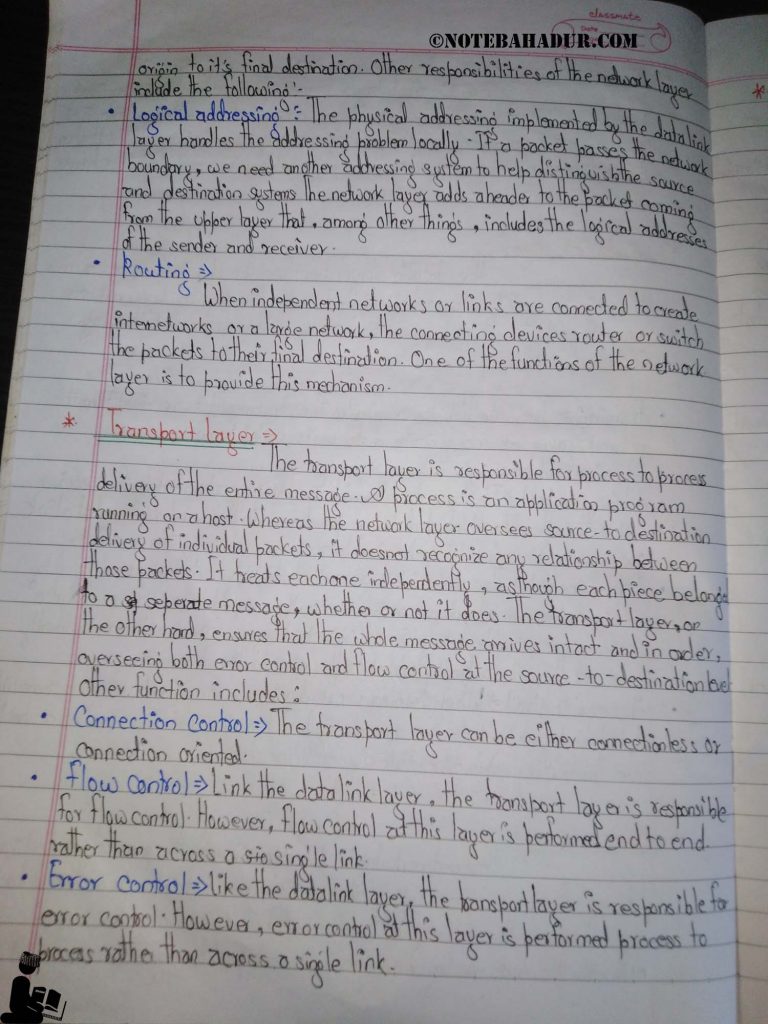 classmate
©NOTEBAHADUR.COM
origin to it's final destination. Other responsibilities of the network layer
include the following:-
• Logical addressing :- The physical addressing implemented by the data link
layer handles the addressing problem locally. If a packet passes the network
boundary, we need another addressing system to help distinguish the source
and destination systems The network layer adds a header to the packet coming
from the upper layer that, among other things, includes the logical addresses
of the sender and receiver.
• Routing =>
When independent networks or links are connected to create
internetworks or a large network, the connecting devices router or switch
the packets to their final destination. One of the functions of the network
layer is to provide this mechanism.
* Transport layer =>
The transport layer is responsible for process to process
delivery of the entire message. A process is an application program
running on a host. Whereas the network layer oversees source-to destination
delivery of individual packets, it doesnot recognize any relationship between
those packets. It treats each one independently, as though each piece belong
to a seperate message, whether or not it does. The transport layer, on
the other hand, ensures that the whole message arrives intact and in order,
overseeing both error control and flow control at the source-to-destination level
other function includes:
• Connection control => The transport layer can be either connectionless or
connection oriented.
• flow control => Link the data link layer, the transport layer is responsible
for flow control. However, flow control at this layer is performed end to end.
rather than across a single link.
• Error control => like the data link layer, the transport layer is responsible for
error control. However, error control at this layer is performed process to
process rather than across a single link.
*